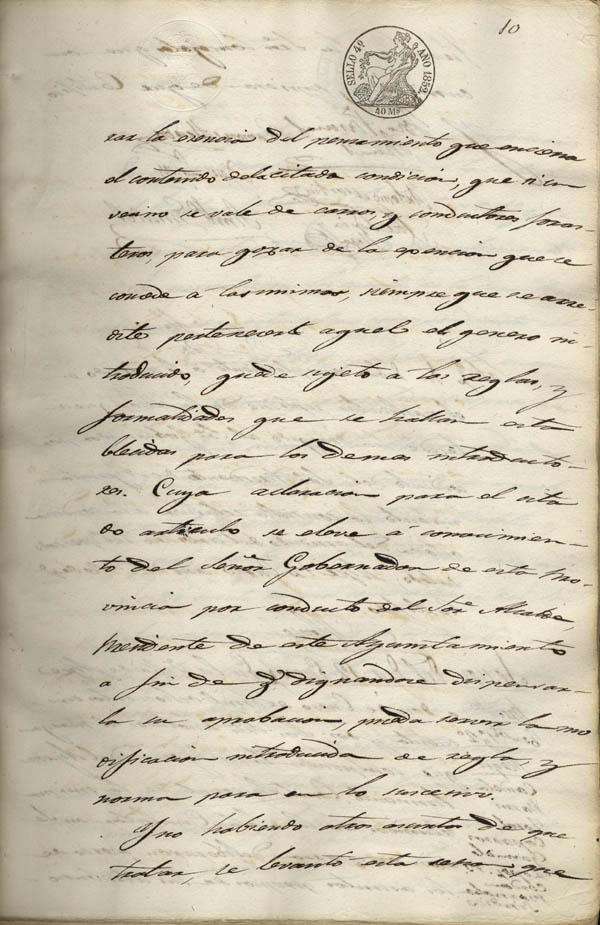 10
SELLO 4º AÑO 1859.
40 Ms
rar la esencia del pensamiento que encierra
el contenido de la citada condicion, que si un
vecino se vale de carros, y conductores foras-
teros, para gozar de la epencion que se
concede a los mismos, siempre que se acre-
dite pertenecerle aquel el genero in-
troducido, quede sujeto a las reglas, y
formalidades que se hallan esta
blecidas para los demas introducto-
res. Cuya aclaracion para el cita
do articulo se eleve á conocimien-
to del Señor Gobernador de esta Pro-
vincia por conducto del Sor. Alcalde,
Presidente de este Ayuntamiento
a fin de q. dignandose dispensar-
la su aprobacion, pueda servir la mo
dificacion introducida de regla, y
norma para en lo sucesivo.
Y no habiendo otro asunto de que
tratar, se levantó esta sesion que